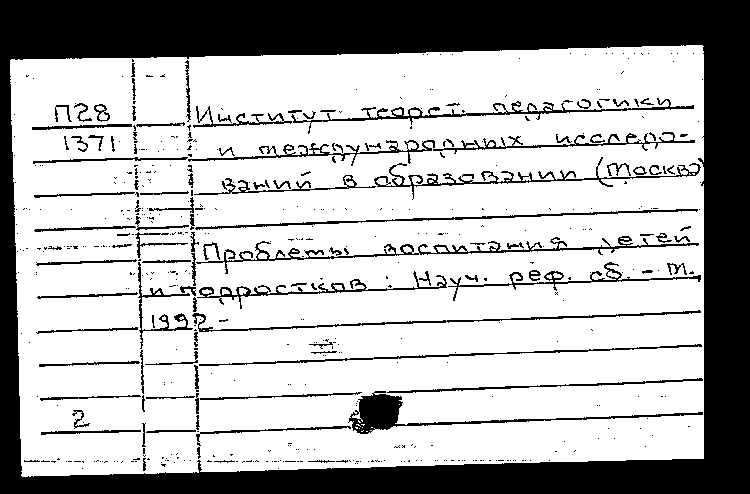 П28 Институт теорет. педагогики
1371 и международных исследо-
ваний в образовании (Москва)
Проблемы воспитания детей
и подростков : Науч. реф. сб. - М.,
1992 -
2